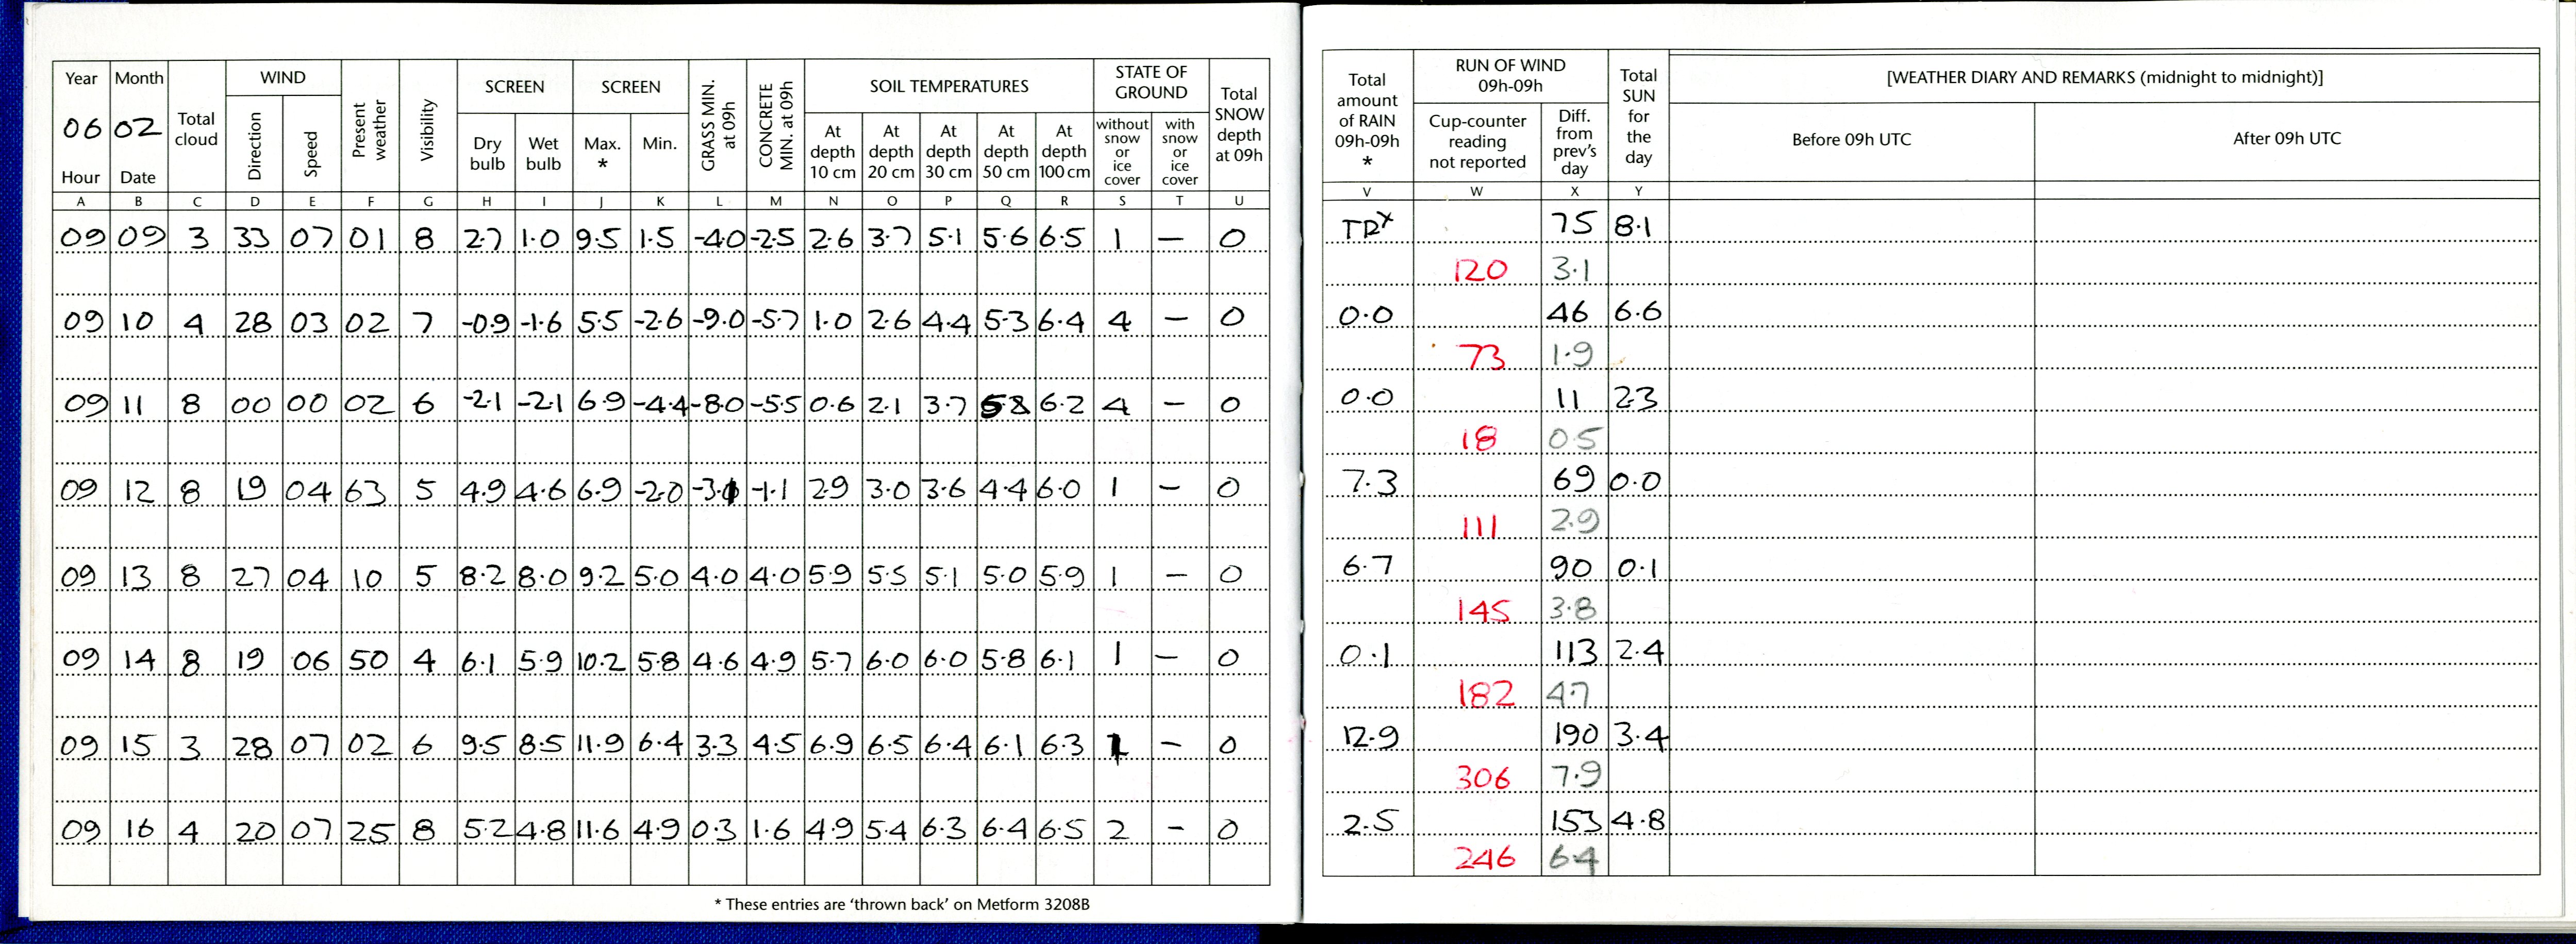 Year Month Total cloud WIND Present weather Visibility SCREEN SCREEN GRASS MIN. at 09h CONCRETE MIN. at 09h SOIL TEMPERATURES STATE OF GROUND Total SNOW depth at 09h
06 02 Direction Speed Dry bulb Wet bulb Max. * Min. At depth 10 cm At depth 20 cm At depth 30 cm At depth 50 cm At depth 100 cm without snow or ice cover with snow or ice cover
Hour Date
A B C D E F G H I J K L M N O P Q R S T U
09 09 3 33 07 01 8 2.7 1.0 9.5 1.5 -4.0 -2.5 2.6 3.7 5.1 5.6 6.5 1 — 0
09 10 4 28 03 02 7 -0.9 -1.6 5.5 -2.6 -9.0 -5.7 1.0 2.6 4.4 5.3 6.4 4 — 0
09 11 8 00 00 02 6 -2.1 -2.1 6.9 -4.4 -8.0 -5.5 0.6 2.1 3.7 6.2 4 — 0
09 12 8 19 04 63 5 4.9 4.6 6.9 -2.0 -1.1 2.9 3.0 3.6 4.4 6.0 1 — 0
09 13 8 27 04 10 5 8.2 8.0 9.2 5.0 4.0 4.0 5.9 5.5 5.1 5.0 5.9 1 — 0
09 14 8 19 06 50 4 6.1 5.9 10.2 5.8 4.6 4.9 5.7 6.0 6.0 5.8 6.1 1 — 0
09 15 3 28 07 02 6 9.5 8.5 11.9 6.4 3.3 4.5 6.9 6.5 6.4 6.1 6.3 1 — 0
09 16 4 20 07 25 8 5.2 4.8 11.6 4.9 0.3 1.6 4.9 5.4 6.3 6.4 6.5 2 — 0
* These entries are ‘thrown back’ on Metform 3208B
Total amount of RAIN 09h-09h * RUN OF WIND 09h-09h Total SUN for the day [WEATHER DIARY AND REMARKS (midnight to midnight)]
Cup-counter reading not reported Diff. from prev's day Before 09h UTC After 09h UTC
V W X Y
TRx 75 8.1
120 3.1
0.0 46 6.6
73 1.9
0.0 11 2.3
18 0.5
7.3 69 0.0
111 2.9
6.7 90 0.1
145 3.8
0.1 113 2.4
182 4.7
12.9 190 3.4
306 7.9
2.5 153 4.8
246 6.4